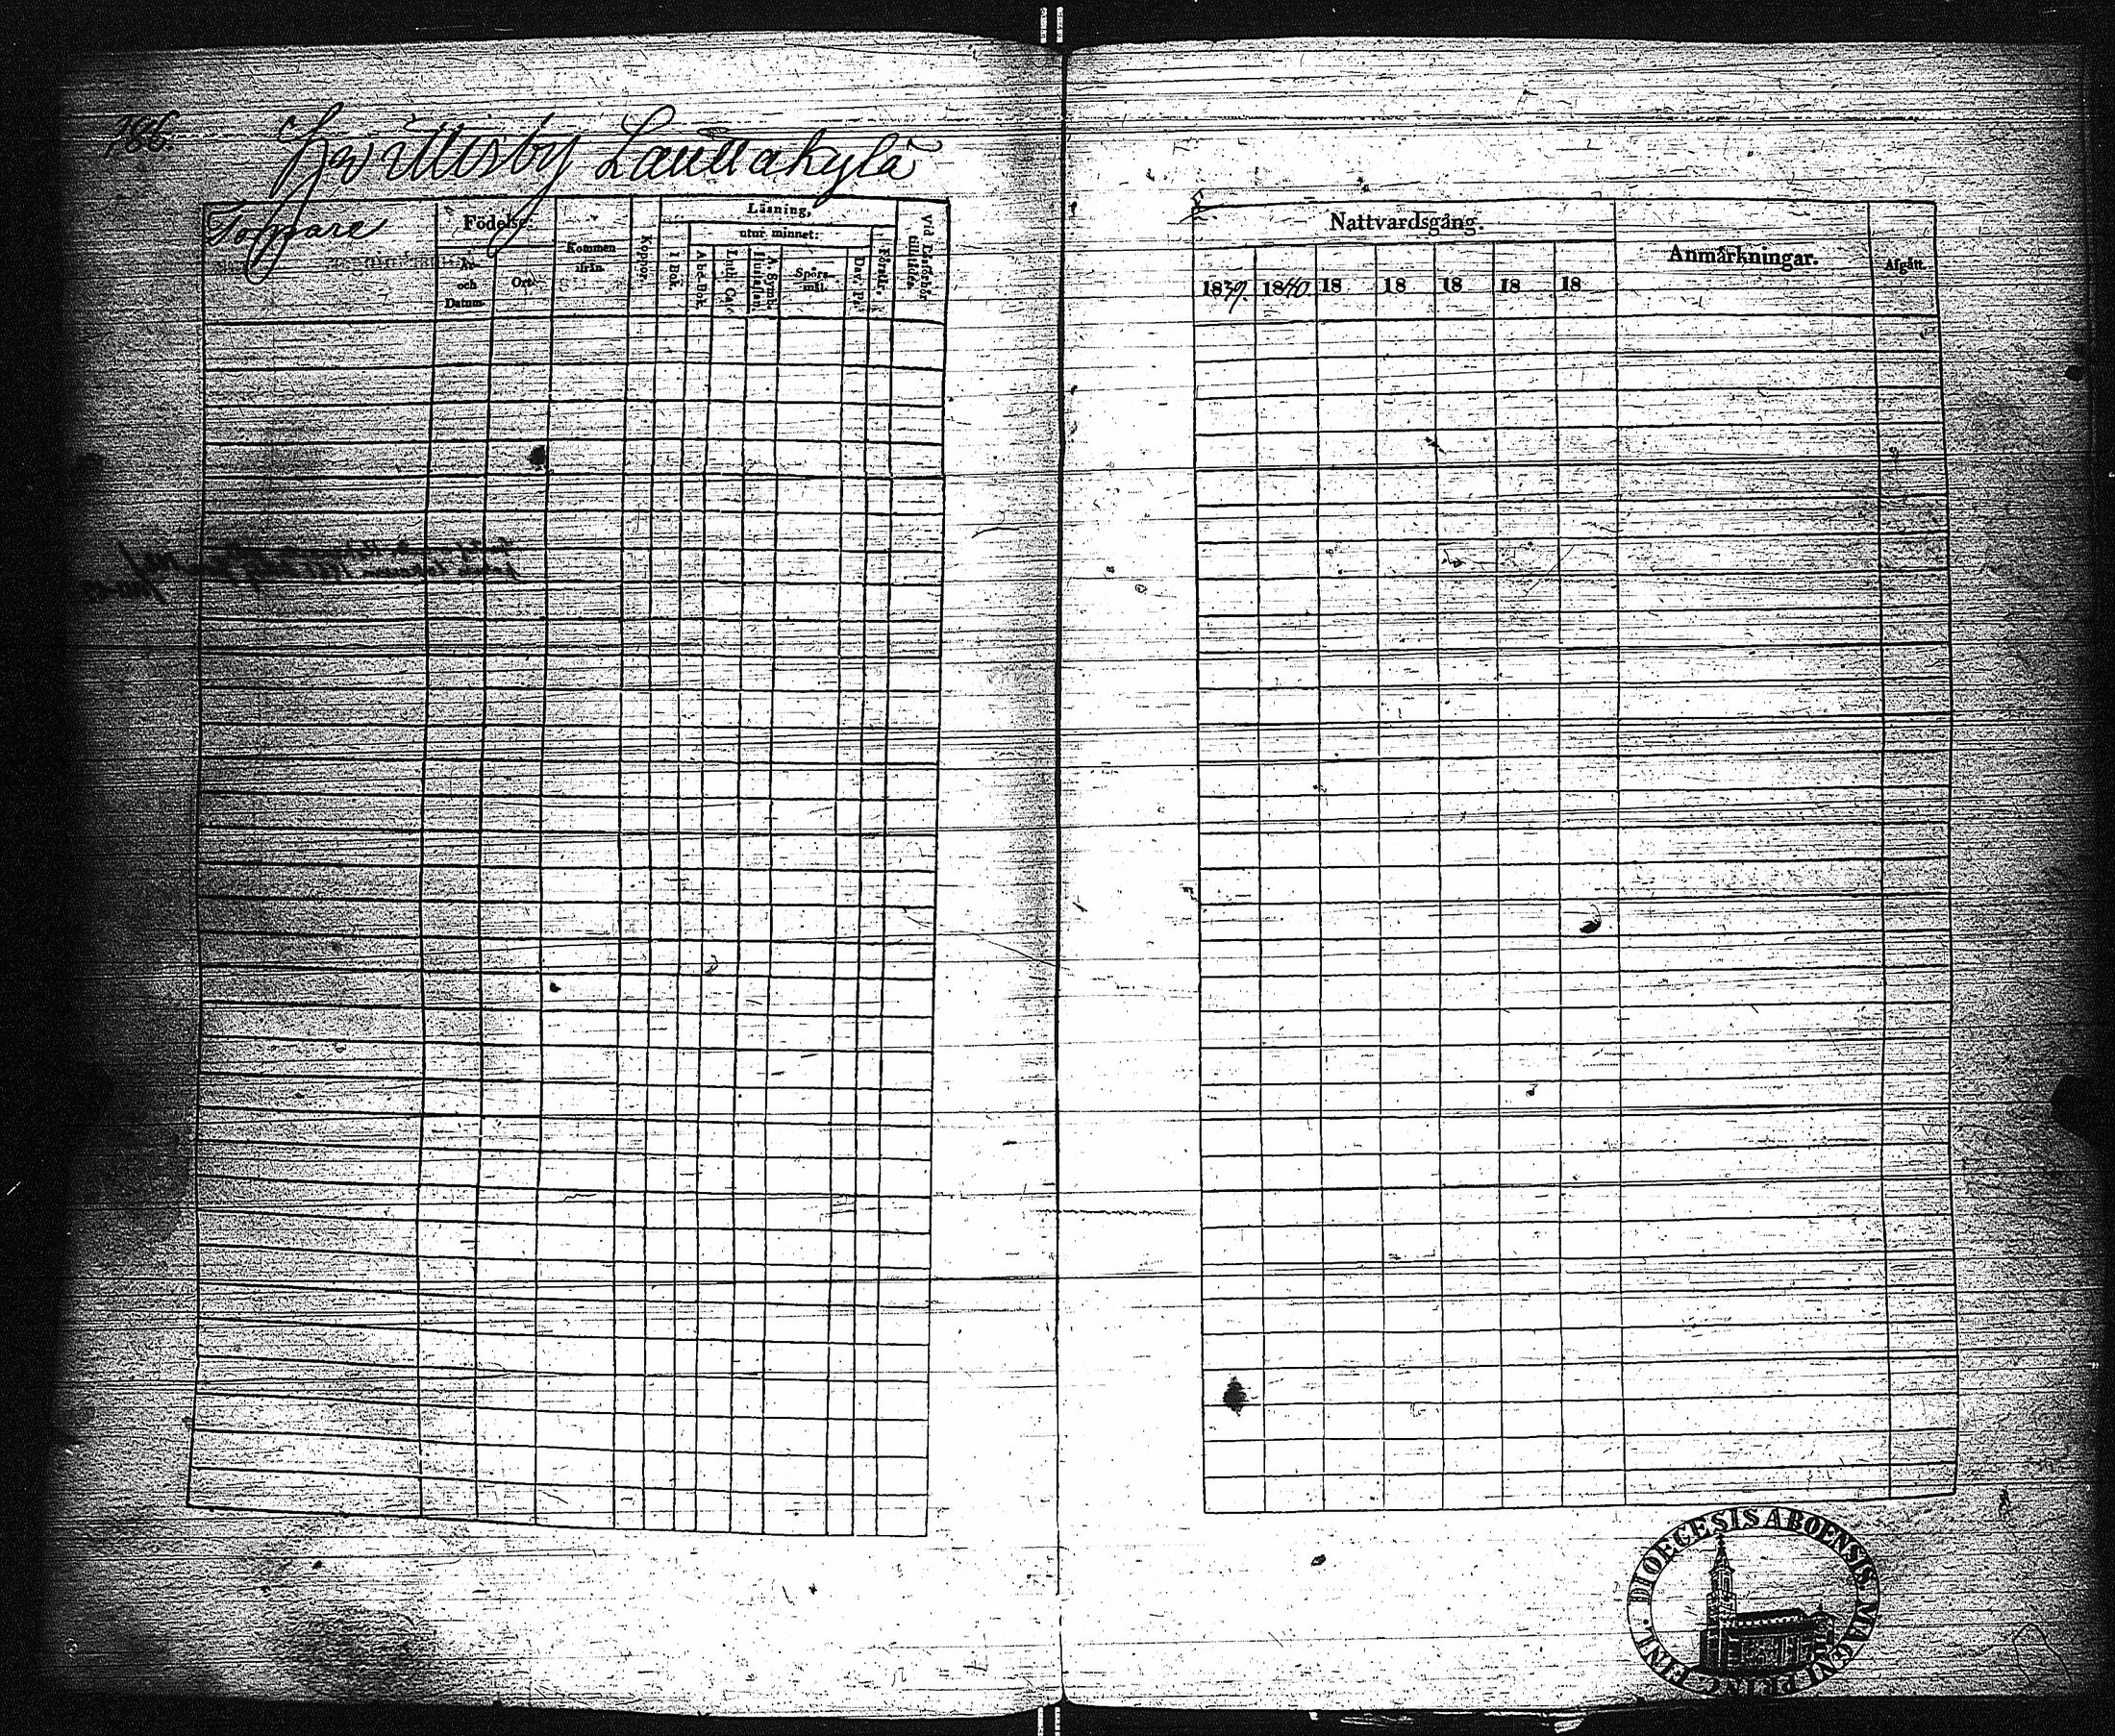 186.
Hvittisby Lauttakylä
Torpare
Födelse:
År och Datum.
Ort.
Kommen ifrån.
Koppor.
Läsning,
utur minnet:
I Bok.
Abc-Bok.
Luth. Cat.
Hustaflan.
A. Symb.
Spörsmål.
Dav. Ps.
Förstår.
Vid Läseförhör tillstädes.
Nattvardsgång.
1839. 1840. 18 18 18 18 18
Anmärkningar.
Afgått.
DIOECESIS ABOENSIS MAGNI PRINC. FINL.